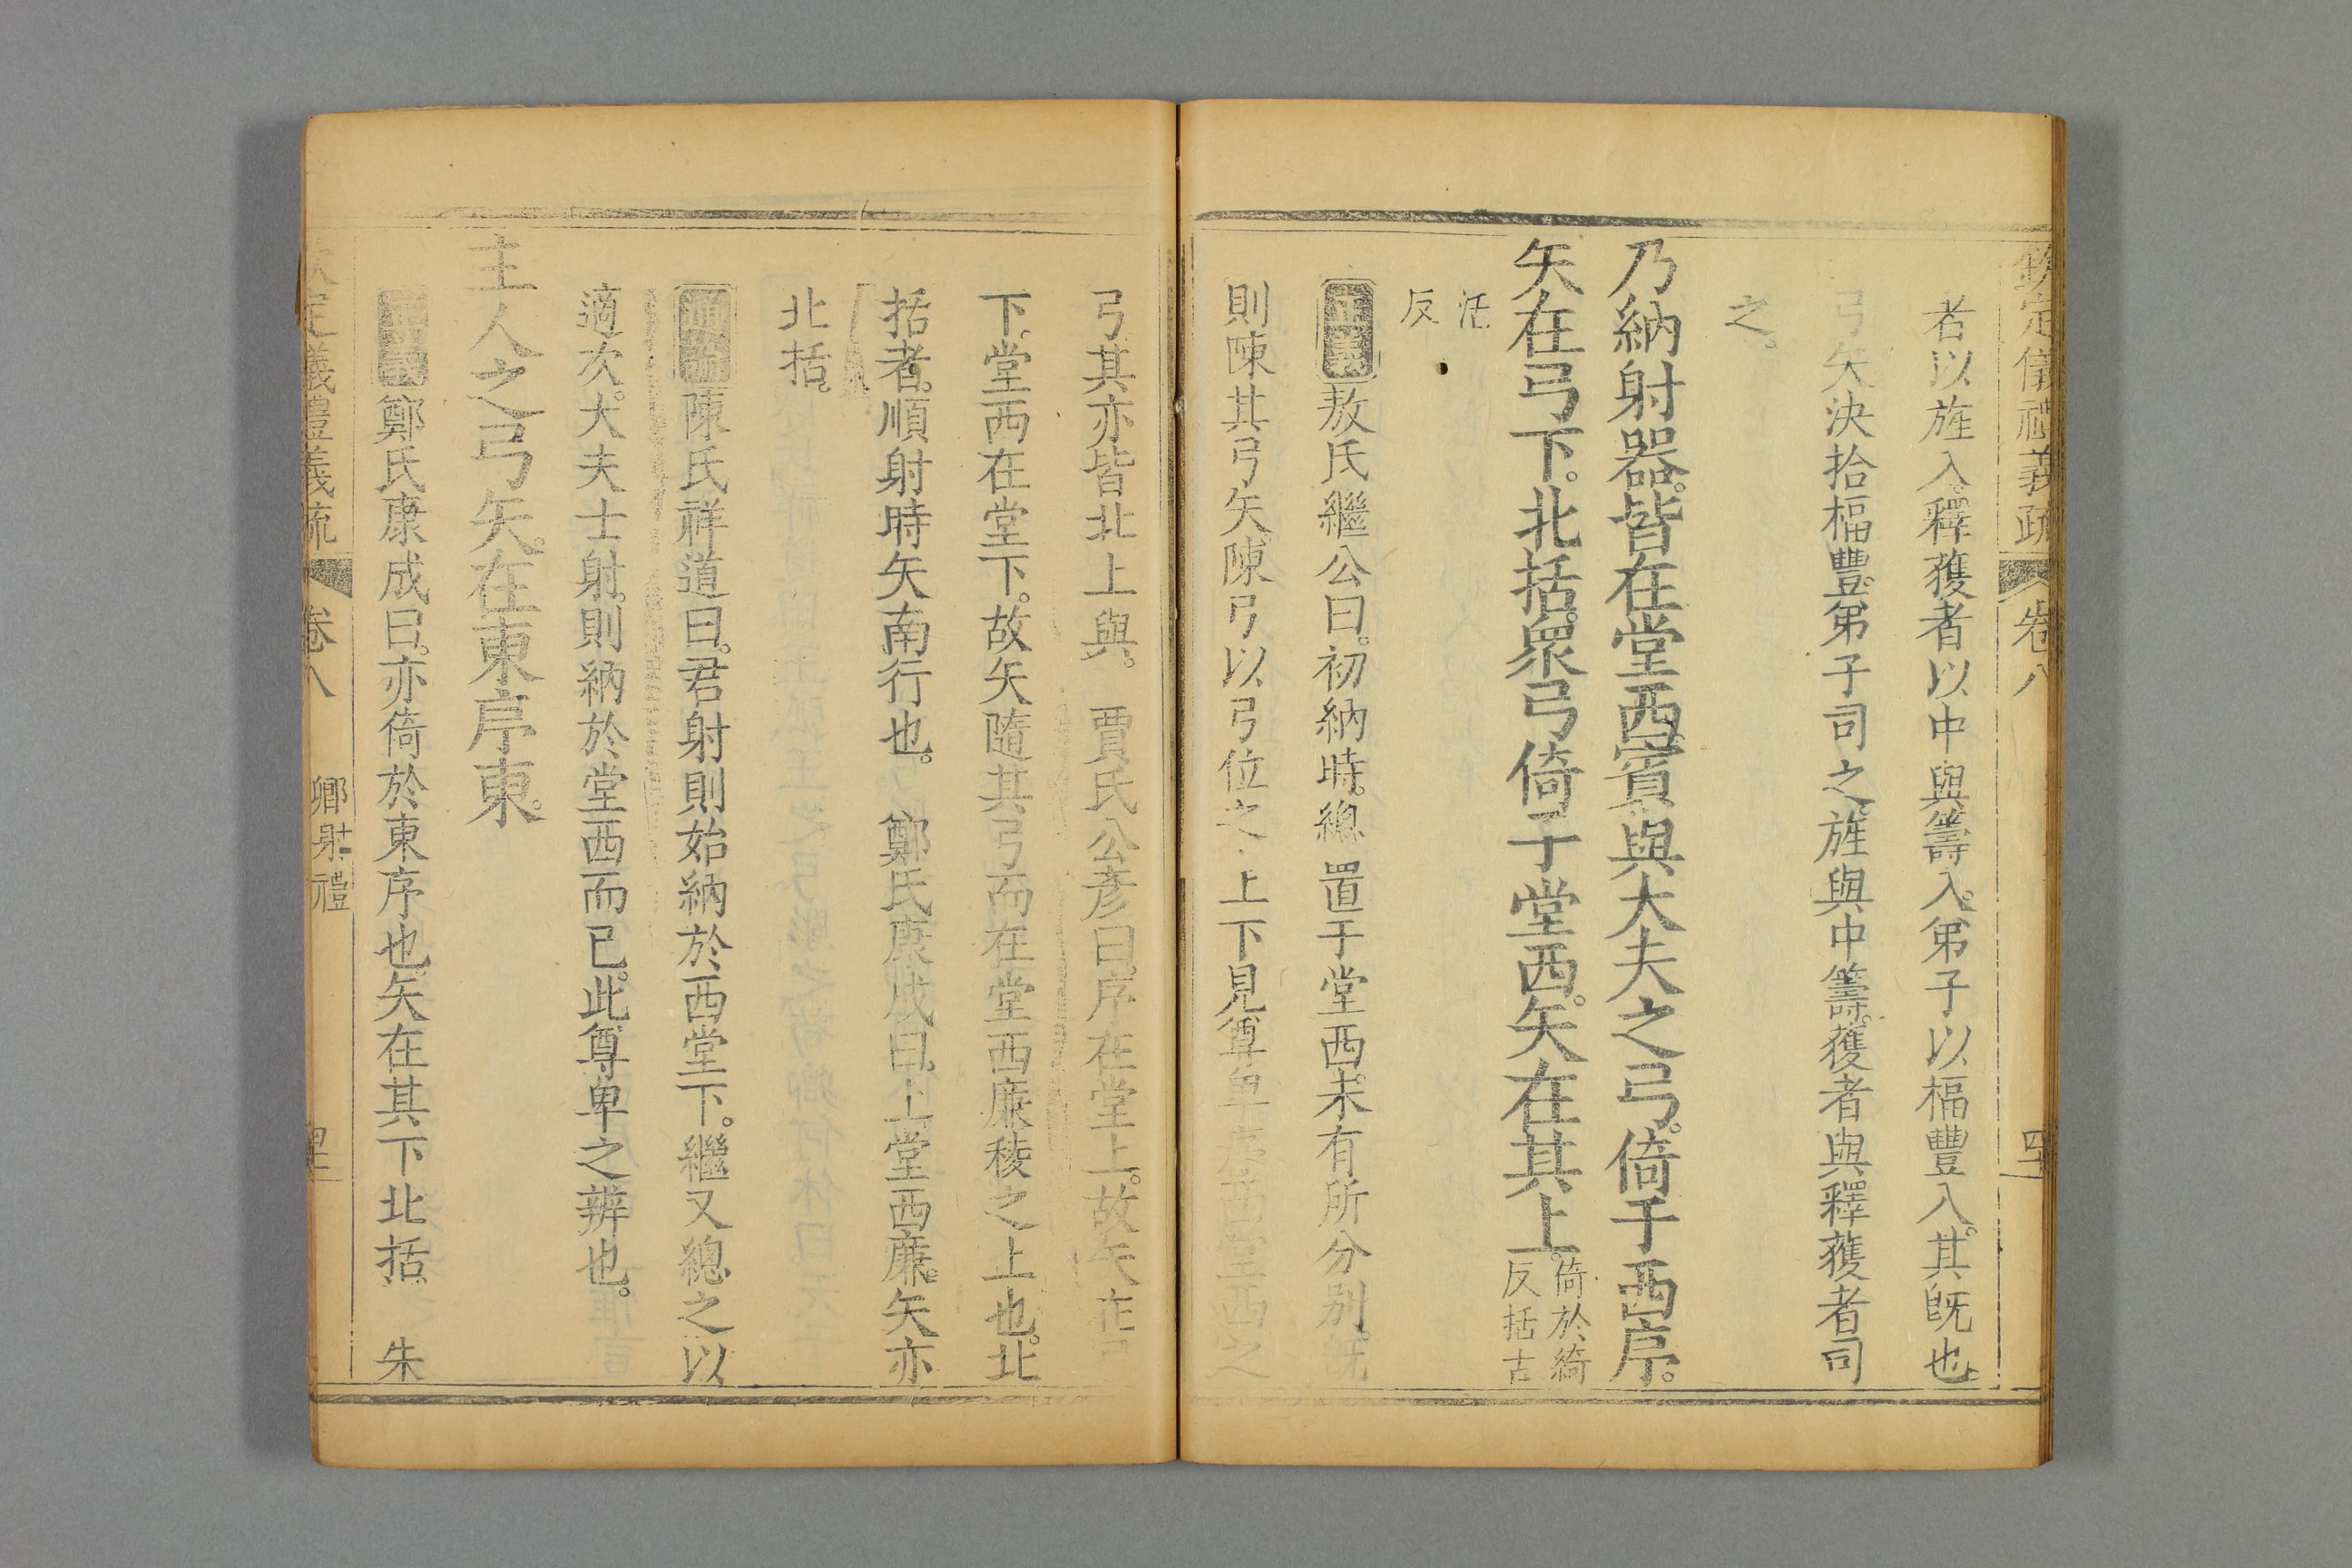 欽定儀禮義疏 卷八
者以旌入。釋獲者以中與籌入。弟子以楅豐入。其旣也
弓矢決拾楅豐。弟子司之。旌與中籌。獲者與釋獲者司
之。
乃納射器。皆在堂西。賓與大夫之弓。倚于西序。
矢在弓下。北括。眾弓倚于堂西。矢在其上。倚於綺反括古
活反
正義敖氏繼公曰。初納時。總置于堂西。未有所分別。旣
則陳其弓矢陳弓以弓位之上下見尊卑序西堂西之
弓其亦皆北上與。 賈氏公彥曰。序在堂上。故矢在弓
下。堂西在堂下。故矢隨其弓而在堂西廉稜之上也。北
括者。順射時矢南行也。 鄭氏康成曰。上堂西廉。矢亦
北括。
通論陳氏祥道曰。君射則始納於西堂下。繼又總之以
適次。大夫士射。則納於堂西而已。此尊卑之辨也。
主人之弓矢。在東序東。
正義鄭氏康成曰。亦倚於東序也。矢在其下北括。 朱
定儀禮義疏 卷八 鄉射禮